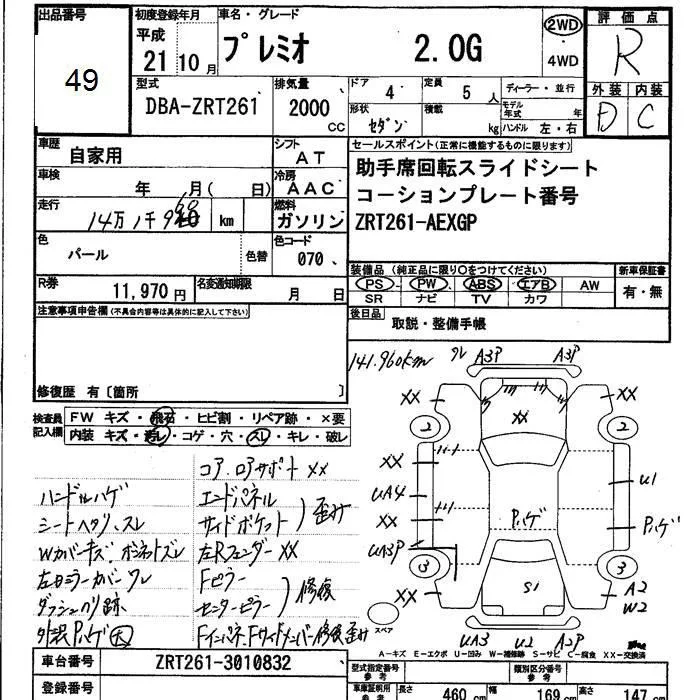 出品番号
49
初度登録年月
平成
21 10月
車名・グレード
プレミオ 2.0G
2WD
4WD
評価点
R
外装 内装
D C
型式
DBA-ZRT261
排気量
2000
CC
ドア
4
定員
5 人
形状
セダン
積載
kg
ディーラー・並行
モデル年式 年
ハンドル 左・右
車歴
自家用
シフト
AT
車検
年 月( 日)
冷房
AAC
走行
14万1千960 km
燃料
ガソリン
色
パール
色替
色コード
070、
R券
11,970円
名変通知期限
月 日
セールスポイント(正常に機能するものに限ります)
助手席回転スライドシート
コーションプレート番号
ZRT261-AEXGP
装備品(純正品に限り○をつけてください)
PS PW ABS エアB AW
SR ナビ TV カワ
新車保証書
有・無
後日品
取説・整備手帳
注意事項申告欄(不具合内容等は具体的に記入して下さい)
修復歴 有〔箇所 〕
検査員記入欄
FW キズ・飛石・ヒビ割・リペア跡・×要
内装 キズ・汚レ・コゲ・穴・スレ・キレ・破レ
141,960km
ワレ A3P A3P
XX XX
XX
2 2
XX
UA4
XX
UA3P
U1
Pハゲ
Pハゲ
3 3
XX
S1
A2
W2
スペア
UA3 U2 A2P
コア、ロアサポート XX
ハンドルハゲ
エンドパネル
シートヘタリ、スレ
サイドポケット
歪み
Wカバーキズ、ボンネットズレ
左Rフェンダー XX
左ドアミラーカバーワレ
Fピラー
ダッシュのり跡
センターピラー
修復
外装Pハゲ大
Fインパネ、Fサイドメンバー修復歪み
A-キズ E-エクボ U-凹み W-補修跡 S-サビ C-腐食 XX-交換済
車台番号
ZRT261-3010832
登録番号
型式指定番号
参考
類別区分番号
参考
車庫証明用
参考
長さ
460 cm
幅
169 cm
高さ
147 cm